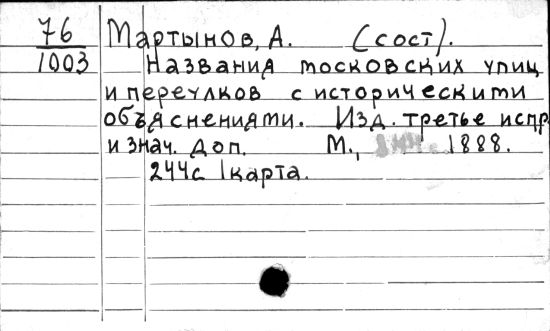 76 Мартынов, А. (сост).
1003 Названия московских улиц
и переулков с историческими
объяснениями. Изд. третье испр
и знач. доп. М., 1888.
244с 1карта.